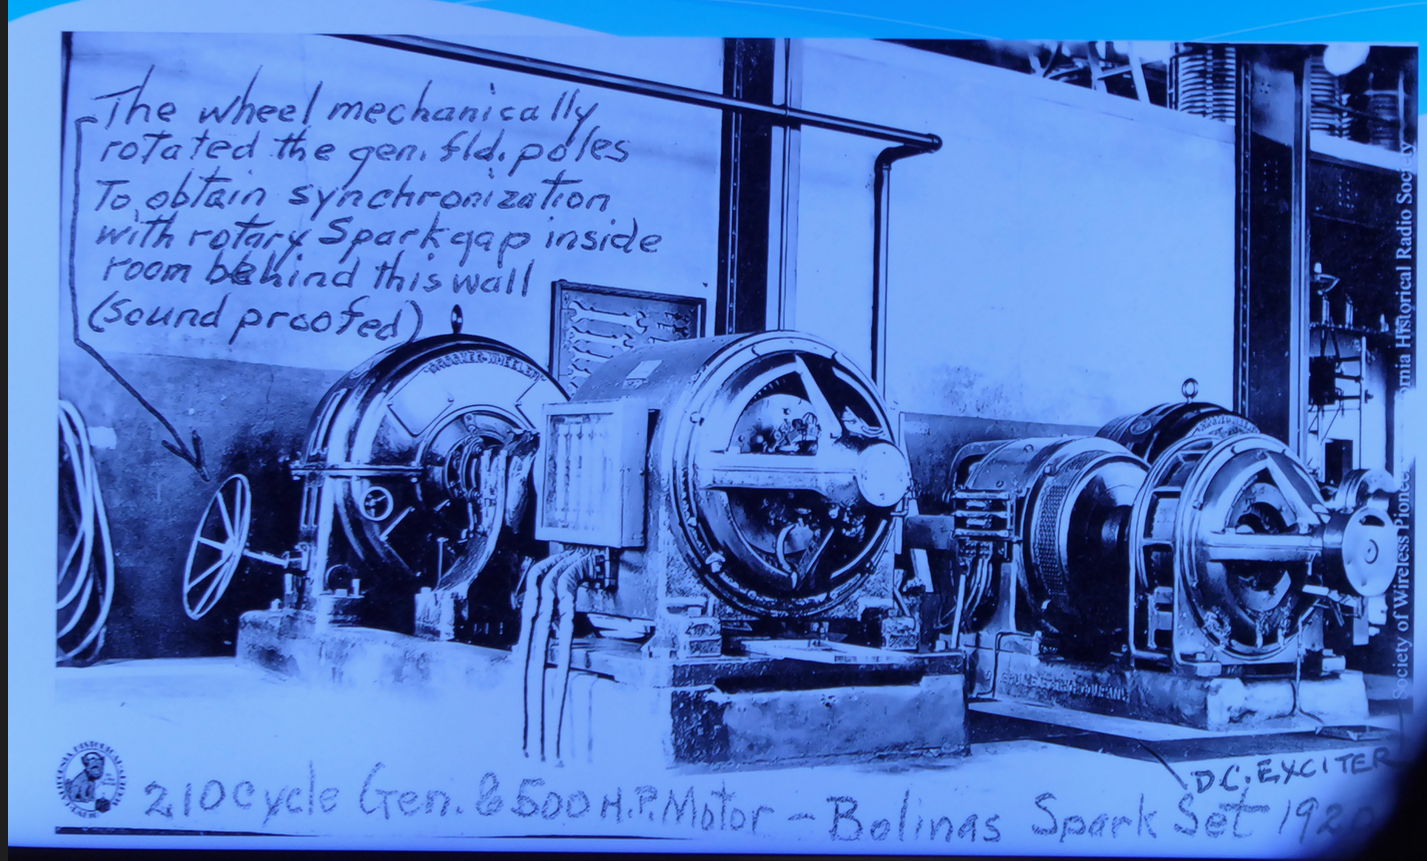 The wheel mechanically
rotated the gen. fld. poles
To obtain synchronization
with rotary Spark gap inside
room behind this wall
(Sound proofed)
CROCKER-WHEELER
D.C. EXCITER
210 Cycle Gen. & 500 H.P. Motor – Bolinas Spark Set 1920
Society of Wireless Pioneers
California Historical Radio Society